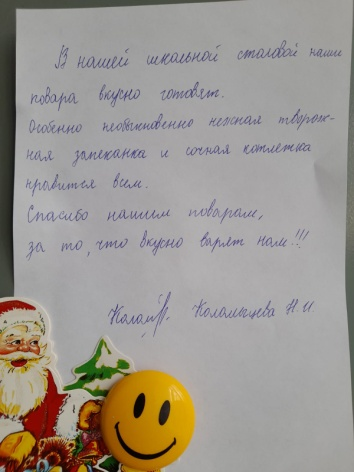 В нашей школьной столовой наши
повара вкусно готовят.
Особенно необыкновенно нежная творож-
ная запеканка и сочная котлетка
нравится всем.
Спасибо нашим поварам,
за то, что вкусно варят нам!!!
Коломыцева Н.И.